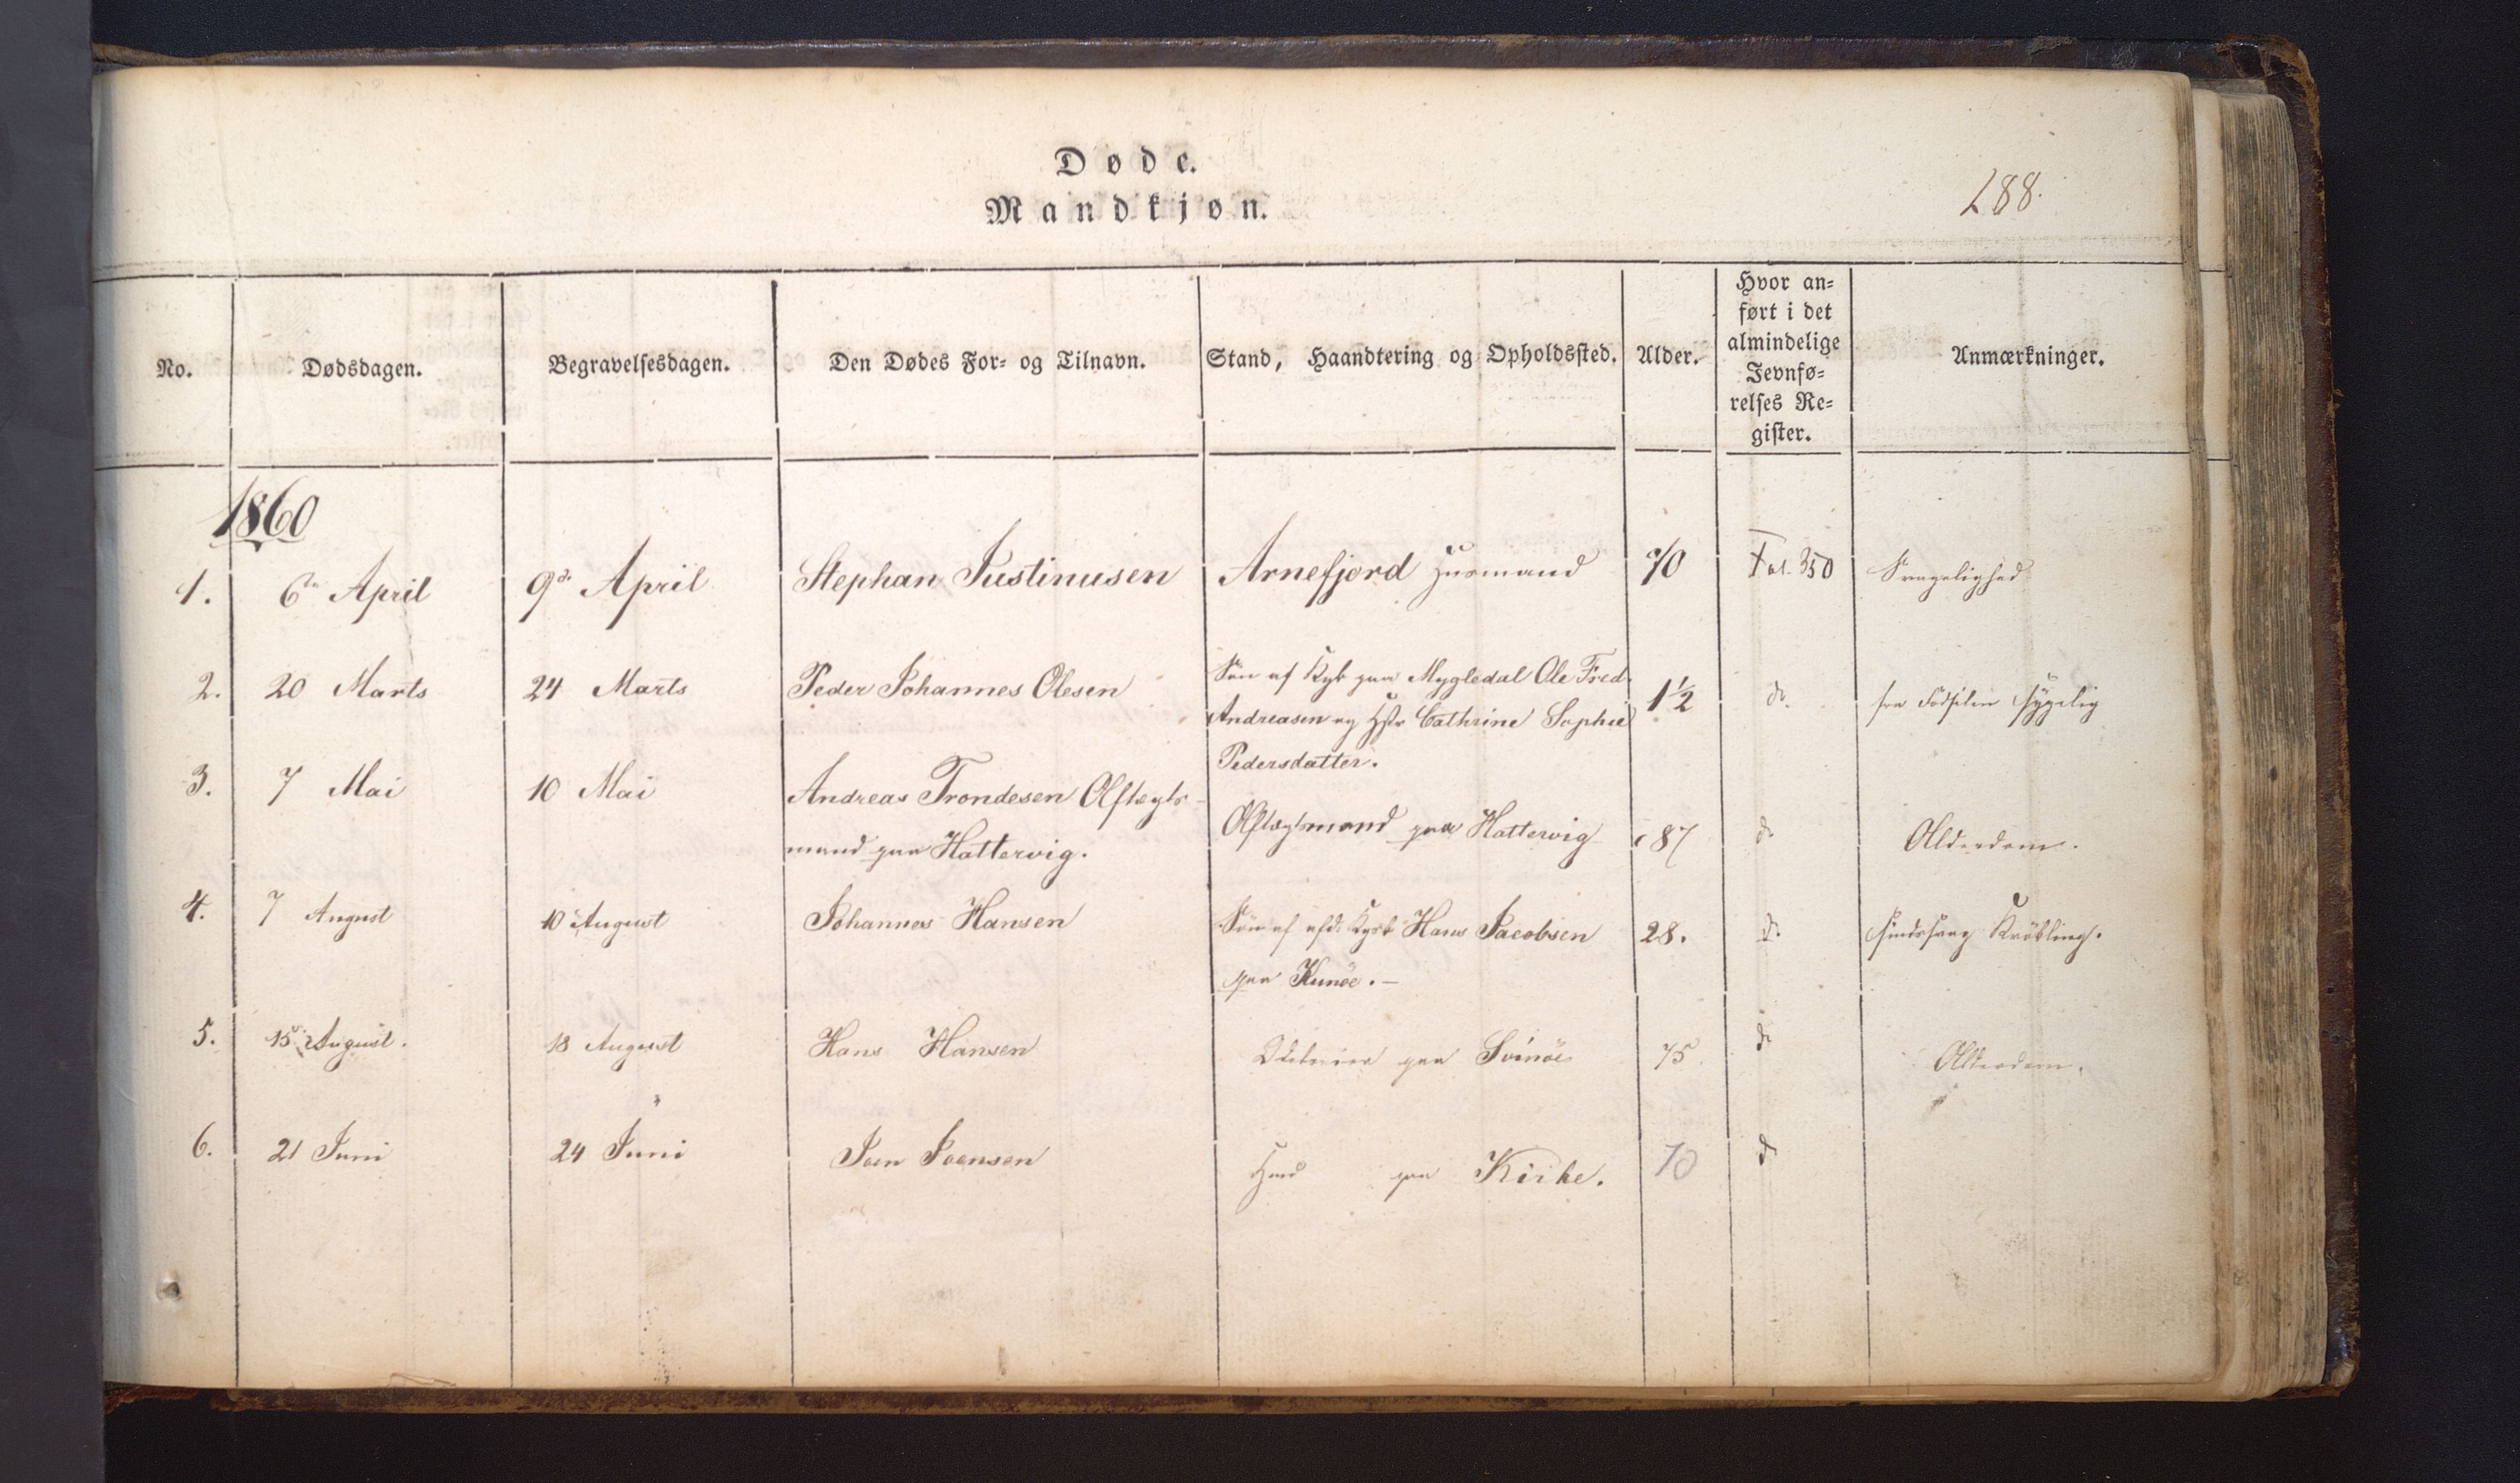 Døde.
Mandkjøn.
288.
No.
Dødsdagen.
Begravelsesdagen.
Den Dødes For- og Tilnavn.
Stand, Haandtering og Opholdssted.
Alder.
Hvor an=
ført i det
almindelige
Jevnfø=
relses Re=
gister.
Anmærkninger.
1860
1. 6te April 9de April Stephan Justinusen Arnefjord Huusmand 70 Fol. 350 Svagelighed
2. 20 Marts 24 Marts Peder Johannes Olesen Søn af paa Mygledal Ole Fred. 1½ do. fra Fødselen sygelig
Andreasen og Hstr Cathrine Sophie
Pedersdatter.
3. 7 Mai 10 Mai Andreas Trondesen Aftægts-
mand paa Hattervig. Aftægtsmand paa Hattervig 87 do. Alderdom.
4. 7 August 10 August Johannes Hansen Søn af afd. Hans Jacobsen 28. do. sindssvag Krøbling.
paa Kunöe. —
5. 15 August. 18 August Hans Hansen paa Svinöe 75 do Alderdom.
6. 21 Juni 24 Juni Joen Joensen Hmd paa Kirke. 70 do